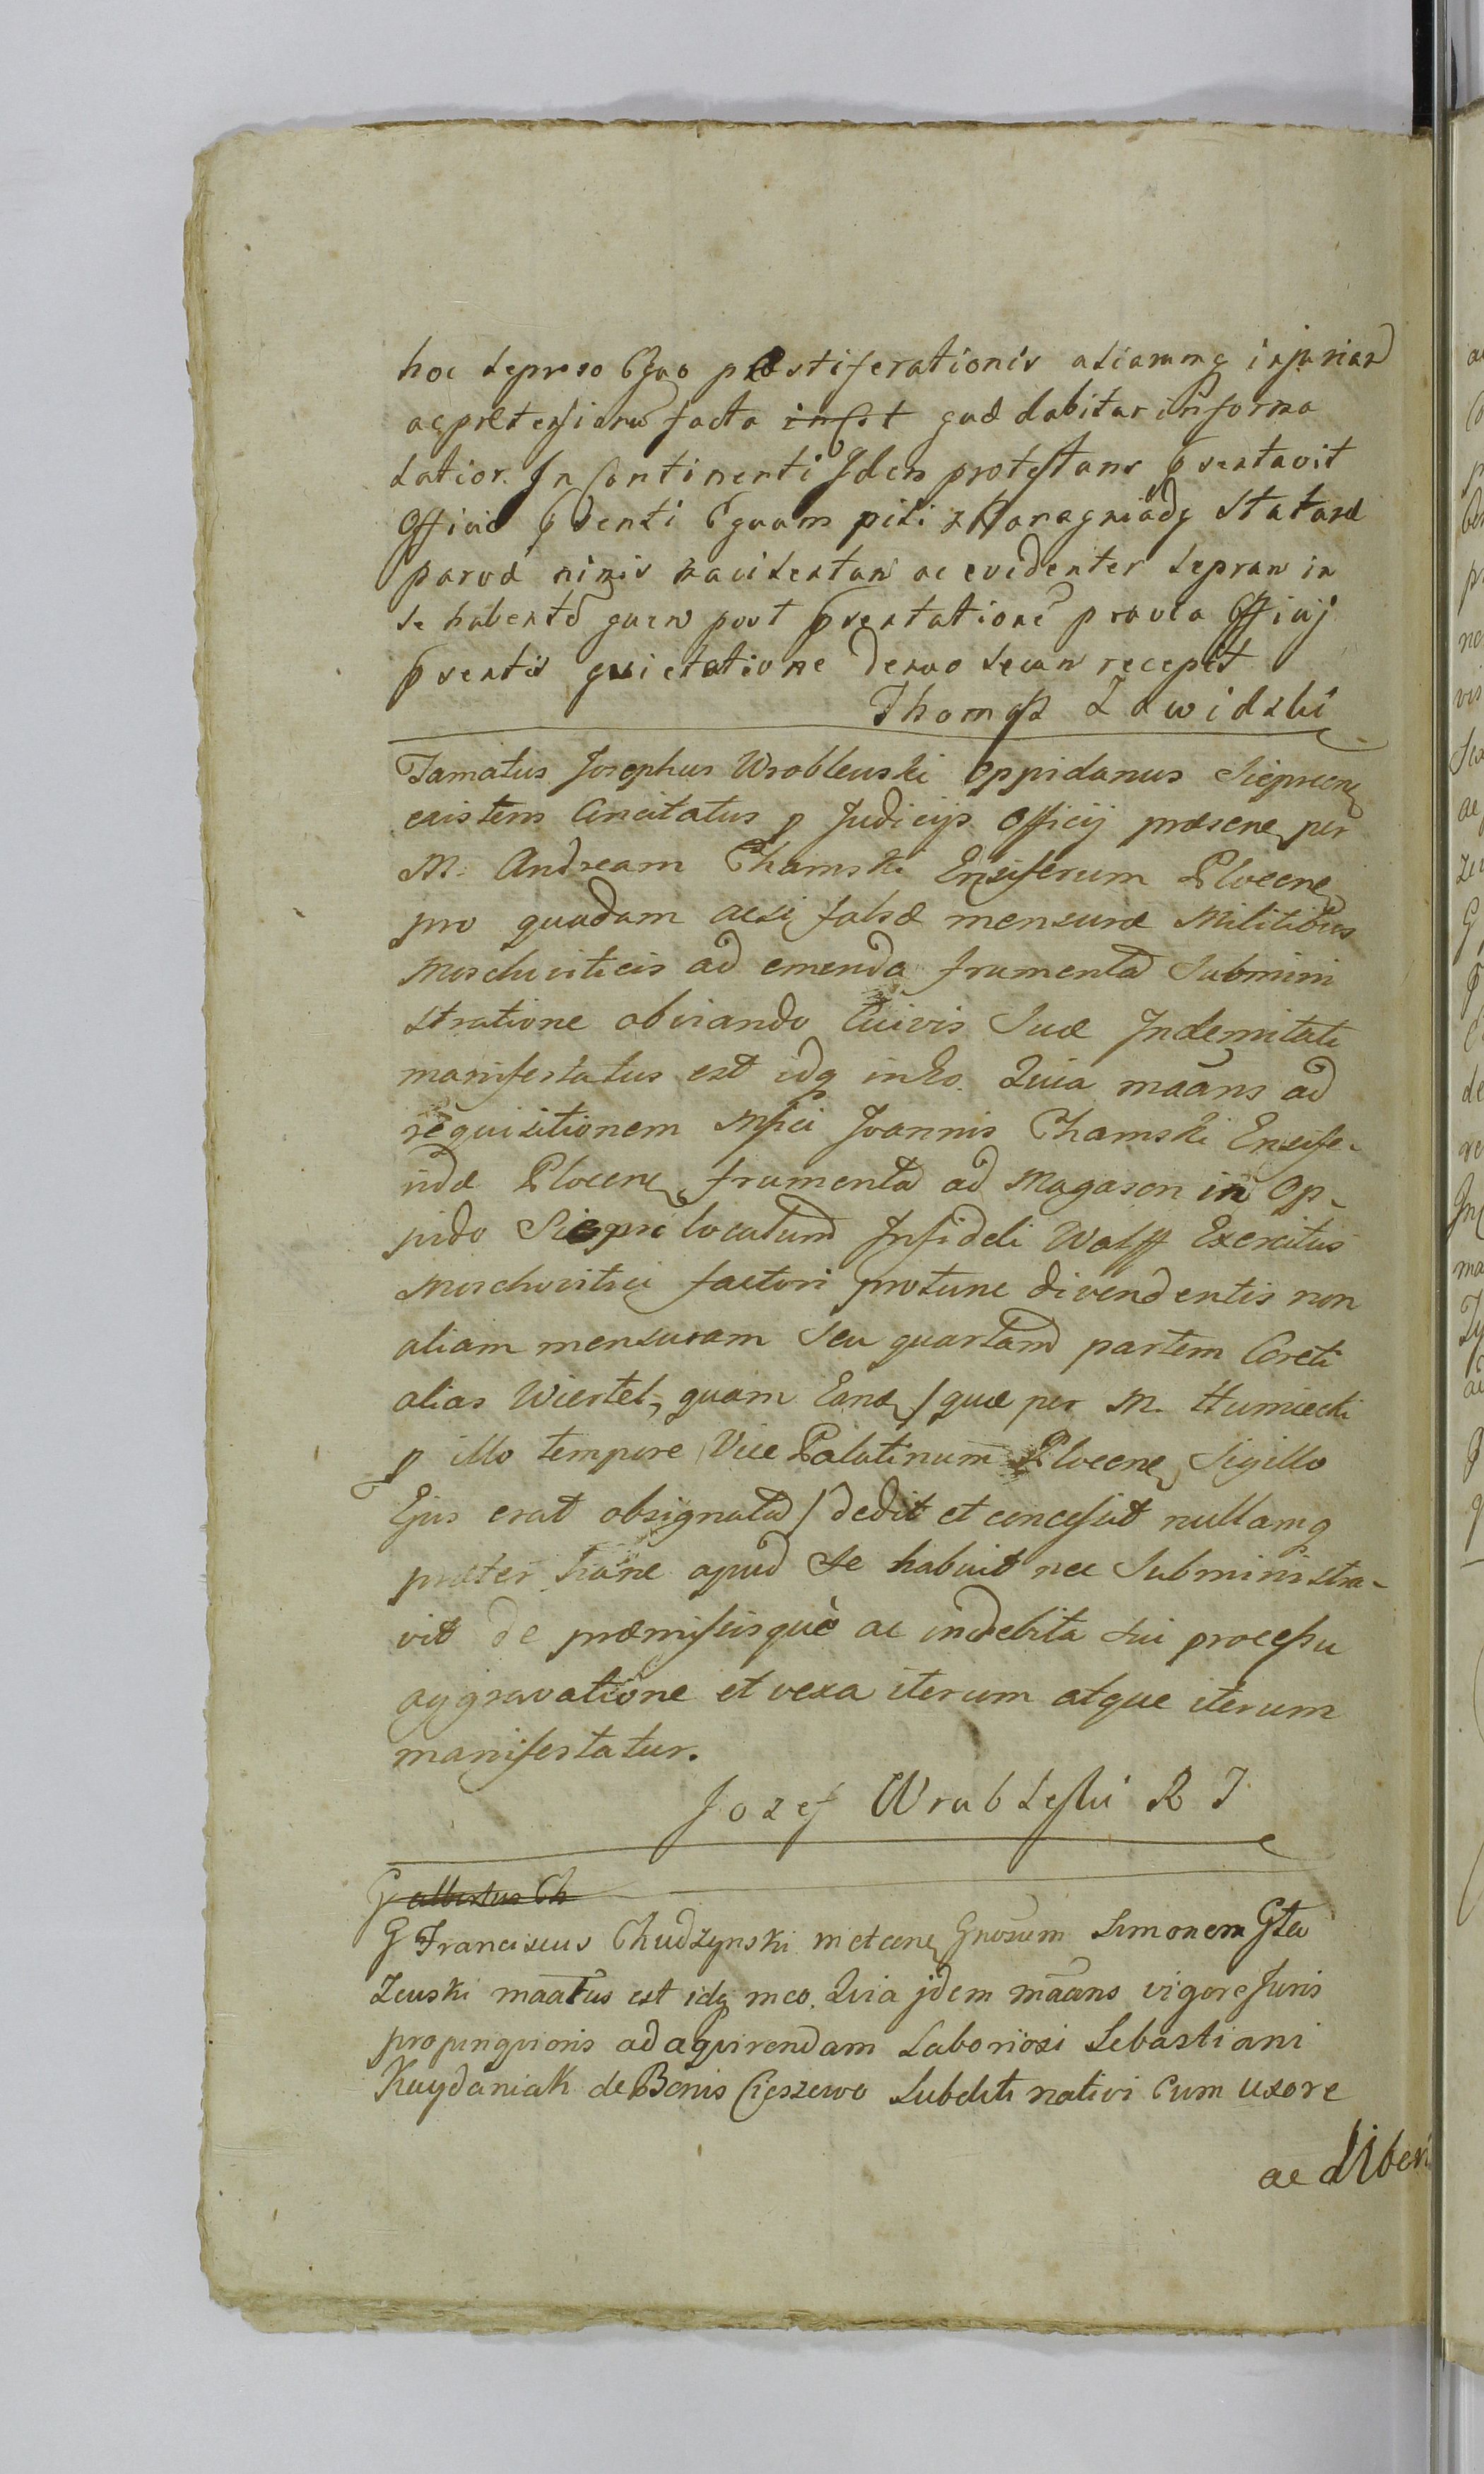 hoc leproso Equo pestiferationis aliarumq injuriar
ac prætensionu facta in est quæ dabitur in forma
latior. In Continenti Idem protestans psentavit
Officio psenti Equum pili z Konagniady Staturæ
parvæ nimis macilentum ac evidenter lepram in
se habente quem post psentatione prævia Officij
psentis quietatione denuo secum recepit
Thomasz Zawidzki
Famatus Josephus Wroblewski Oppidanus Sieprcen
existens Concitatus p Judicijs Officij præsene per
M. Andream Chamski Ensiferum Plocene
pro quadam acsi falsæ mensuræ Militibus
Moschviticis ad emenda frumenta Submini
stratione obviando Cuivis Suæ Indemnitati
manifestatus est idq in Eo. Quia maans ad
requisitionem Mfici Joannis Chamski Ensife-
ridæ Plocene frumenta ad Magason in Op-
pido Siepre locatum Infideli Wolff Exercitus
Moschovitici factori protunc divendentis non
aliam mensuram seu quartam partem Coreti
alias Wiertel, quam Eand /quæ per M. Humiecki
p illo tempore Vice Palatinum Plocene Sigillo
Ejus erat obsignata/ dedit et concessit nullamq
præter hanc apud se habuit nec Subministra-
vit de præmissisque ac indebita sui processu
aggravatione et vexa iterum atque iterum
manifestatur.
Jozef Wrubleski R J
G Albertus Ch
G Franciscus Chudzynski in et cone Gnosum Simonem Gła
Zewski maatus est idq in eo. Quia jdem maans vigore Juris
propinquioris ad aquirendam Laboriosi Sebastiani
Kuydaniak de Bonis Cieszewo Subditi nativi Cum Uxore
ac Liberi